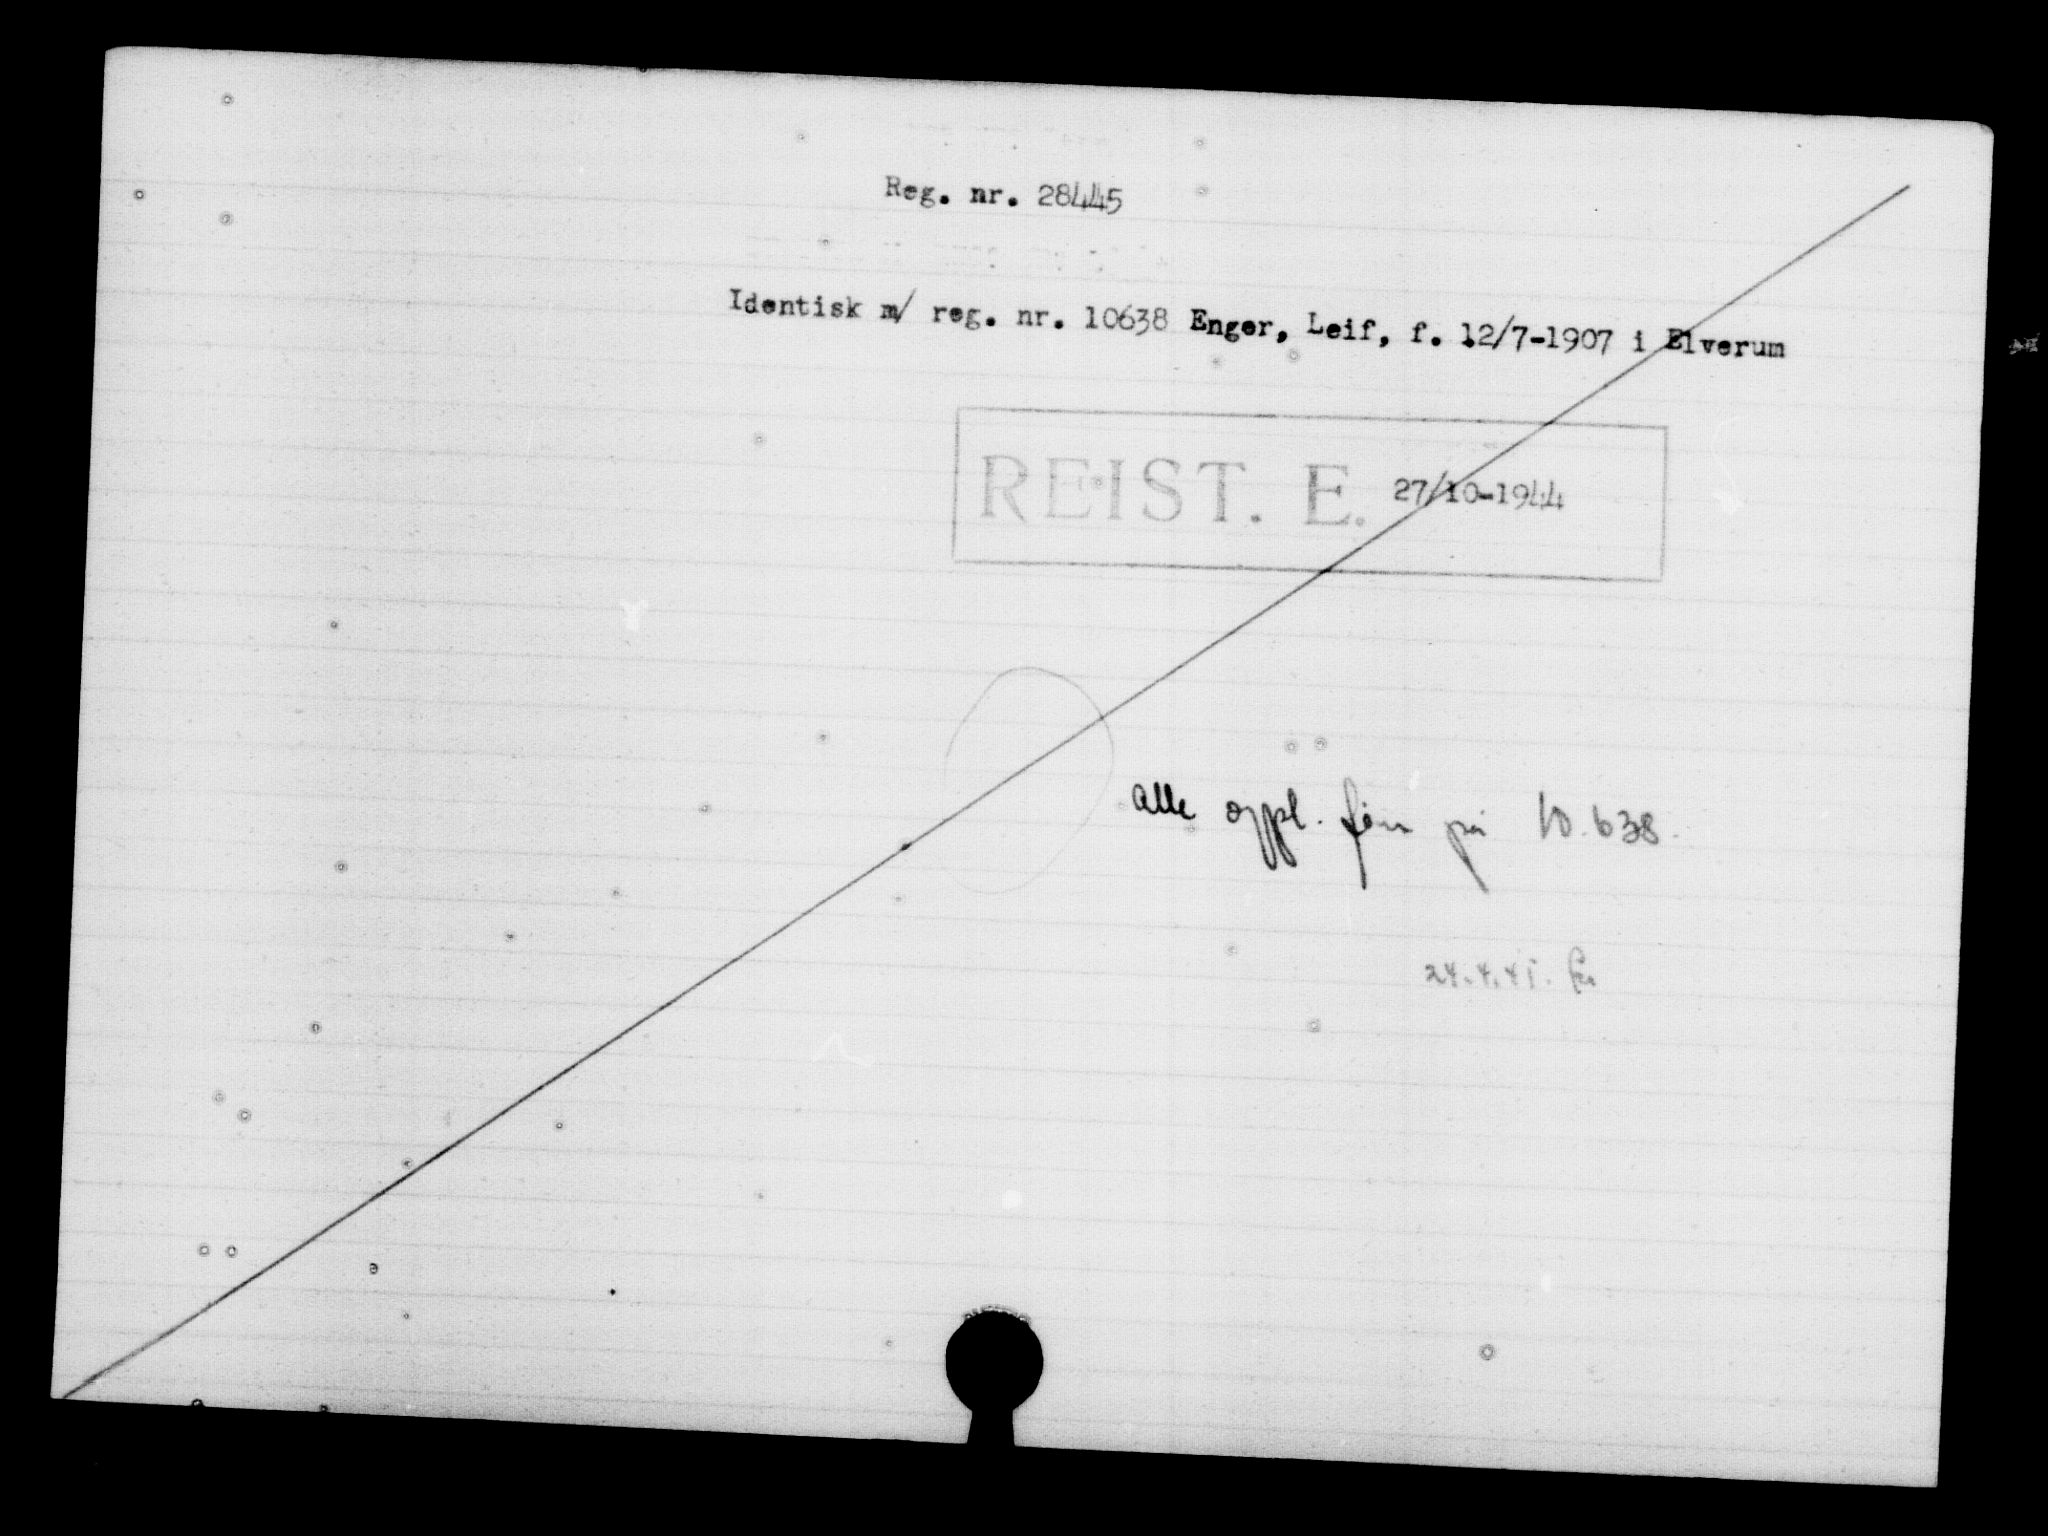 Reg. nr. 28445
Identisk m/ reg. nr. 10638 Enger, Leif, f. 12/7-1907 i Elverum
REIST. E. 27/10-1944
Alle oppl. på 10.638.
24.4.45.